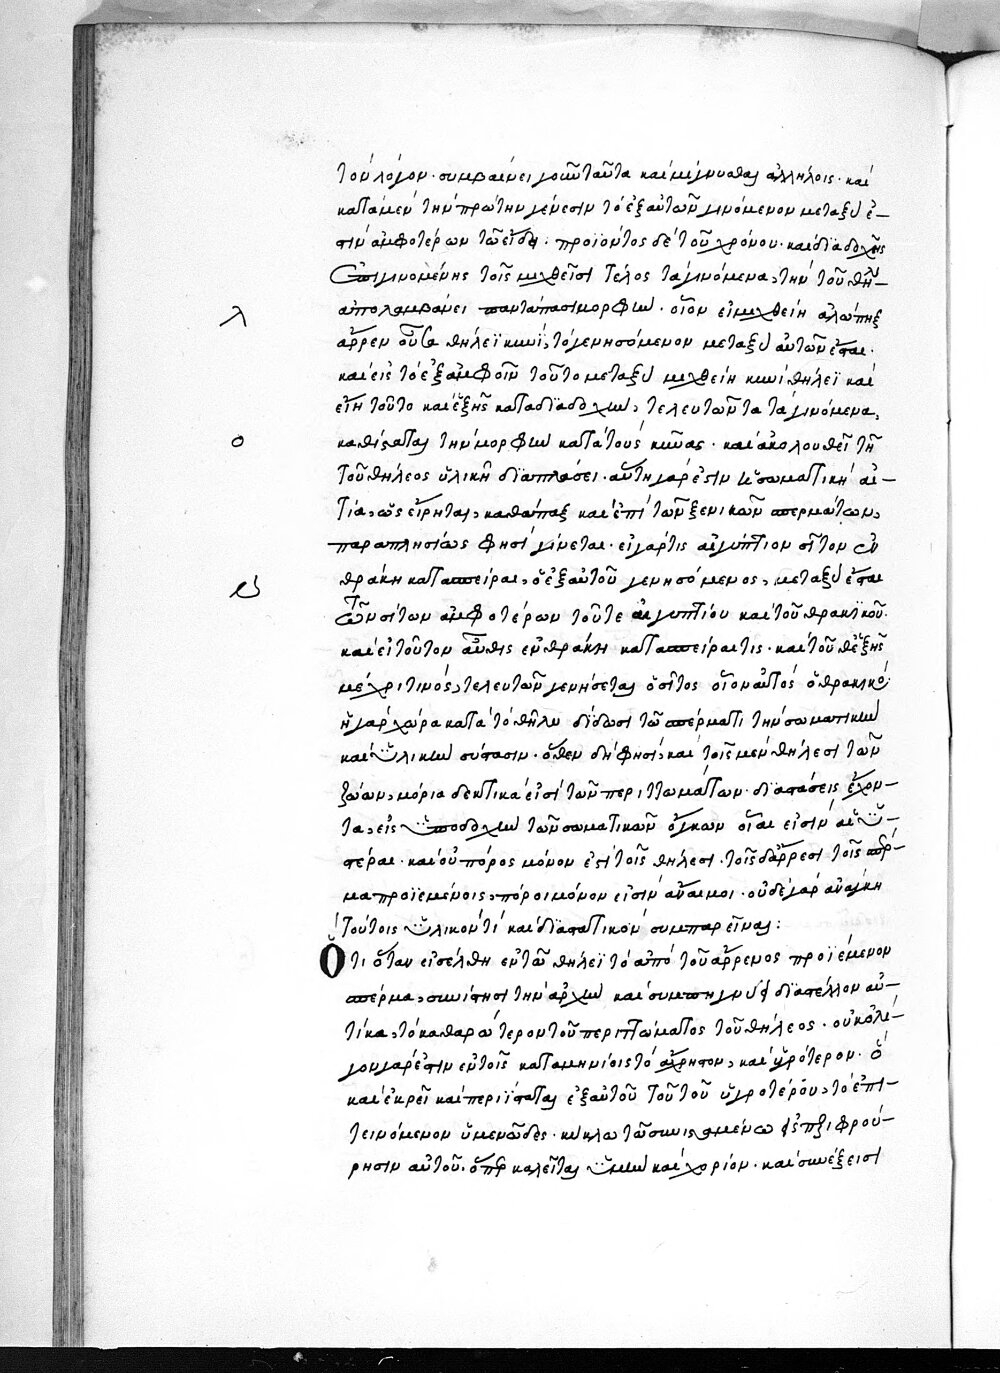 τὸν λόγον· συμβαίνει γοῦν ταῦτα καὶ μίγνυσθαι ἀλλήλοις· καὶ
κατὰ μὲν τὴν πρώτην γένεσιν τὸ ἐξ αὐτῶν γινόμενον μεταξύ ἐ–
στιν ἀμφοτέρων τῷ εἴδει: προϊόντος δὲ τοῦ χρόνου· καὶ διαδοχῆς
ἐπιγινομένης τοῖς μιχθεῖσι τέλος τὰ γινόμενα, τὴν τοῦ θή–
λ ἀπολαμβάνει παντάπασι μορφήν· οἷον εἰ μιχθείη ἀλώπηξ
ἄρρεν οὖσα θηλεῖ κυνί, τὸ γενησόμενον μεταξὺ αὐτῶν ἔσται·
καὶ εἰ τὸ ἐξ ἀμφοῖν τοῦτο μεταξὺ μιχθείη κυνὶ θηλεῖ καὶ
εἴη τοῦτο καὶ ἑξῆς κατὰ διαδοχήν, τελευτῶντα τὰ γινόμενα,
ο καθίσταται τὴν μορφὴν κατὰ τοὺς κύνας· καὶ ἀκολουθεῖ τῇ
τοῦ θήλεος ὑλικῇ διαπλάσει· αὕτη γάρ ἐστιν ἡ σωματικὴ αἰ–
τία, ὡς εἴρηται, καθάπαξ καὶ ἐπὶ τῶν ξενικῶν σπερμάτων,
παραπλησίως φησὶ γίνεται· εἰ γάρ τις αἰγύπτιον σῖτον ἐν
θράκῃ κατασπείραι, ὁ ἐξ αὐτοῦ γενησόμενος, μεταξὺ ἔσται
τῶν σίτων ἀμφοτέρων τοῦ τε αἰγυπτίου καὶ τοῦ θρακικοῦ·
καὶ εἰ τοῦτον αὖθις ἐν θράκῃ κατασπείραι τις· καὶ τοῦθ' ἑξῆς
μέχρι τινός, τελευτῶν γενήσεται ὁ σῖτος οἷον αὐτὸς ὁ θρακικός·
ἡ γὰρ χώρα κατὰ τὸ θῆλυ δίδωσι τῷ σπέρματι τὴν σωματικὴν
καὶ ὑλικὴν σύστασιν· ὅθεν δή φησι, καὶ τοῖς μὲν θήλεσι τῶν
ζῴων, μόρια δεκτικά εἰσι τῶν περιττωμάτων· διαστάσεις ἔχον–
τα, εἰς ὑποδοχὴν τῶν σωματικῶν ὄγκων οἷαί εἰσιν αἱ ὑ–
στέραι· καὶ οὐ πόρος μόνον ἐστὶ τοῖς θήλεσι· τοῖς δ' ἄρρεσι τοῖς σπέρ–
μα προϊεμένοις, πόροι μόνον εἰσὶν ἄναιμοι· οὐδὲ γὰρ ἀνάγκη
τούτοις ὑλικόν τι καὶ διαστατικὸν συμπαρεῖναι:
Ὅτι ὅταν εἰσέλθῃ ἐν τῷ θήλεϊ τὸ ἀπὸ τοῦ ἄρρενος προϊέμενον
σπέρμα, συνίστησι τὴν ἀρχὴν καὶ συμπήγνυσι διαστέλλον αὐ–
τίκα, τὸ καθαρώτερον τοῦ περιττώματος τοῦ θήλεος· οὐκ ὀλί–
γον γάρ ἐστιν ἐν τοῖς καταμηνίοις τὸ ἄχρηστον, καὶ ὑγρότερον· ὃ
καὶ ἐκρεῖ καὶ περιΐσταται ἐξ αὐτοῦ τούτου ὑγροτέρου, τὸ ἐπι–
τεινόμενον ὑμενῶδες· κύκλῳ τῷ συνισταμένῳ
ρησιν αὐτοῦ· ὅπερ καλεῖται ὑμὴν καὶ χορίον· καὶ συνέξεισι